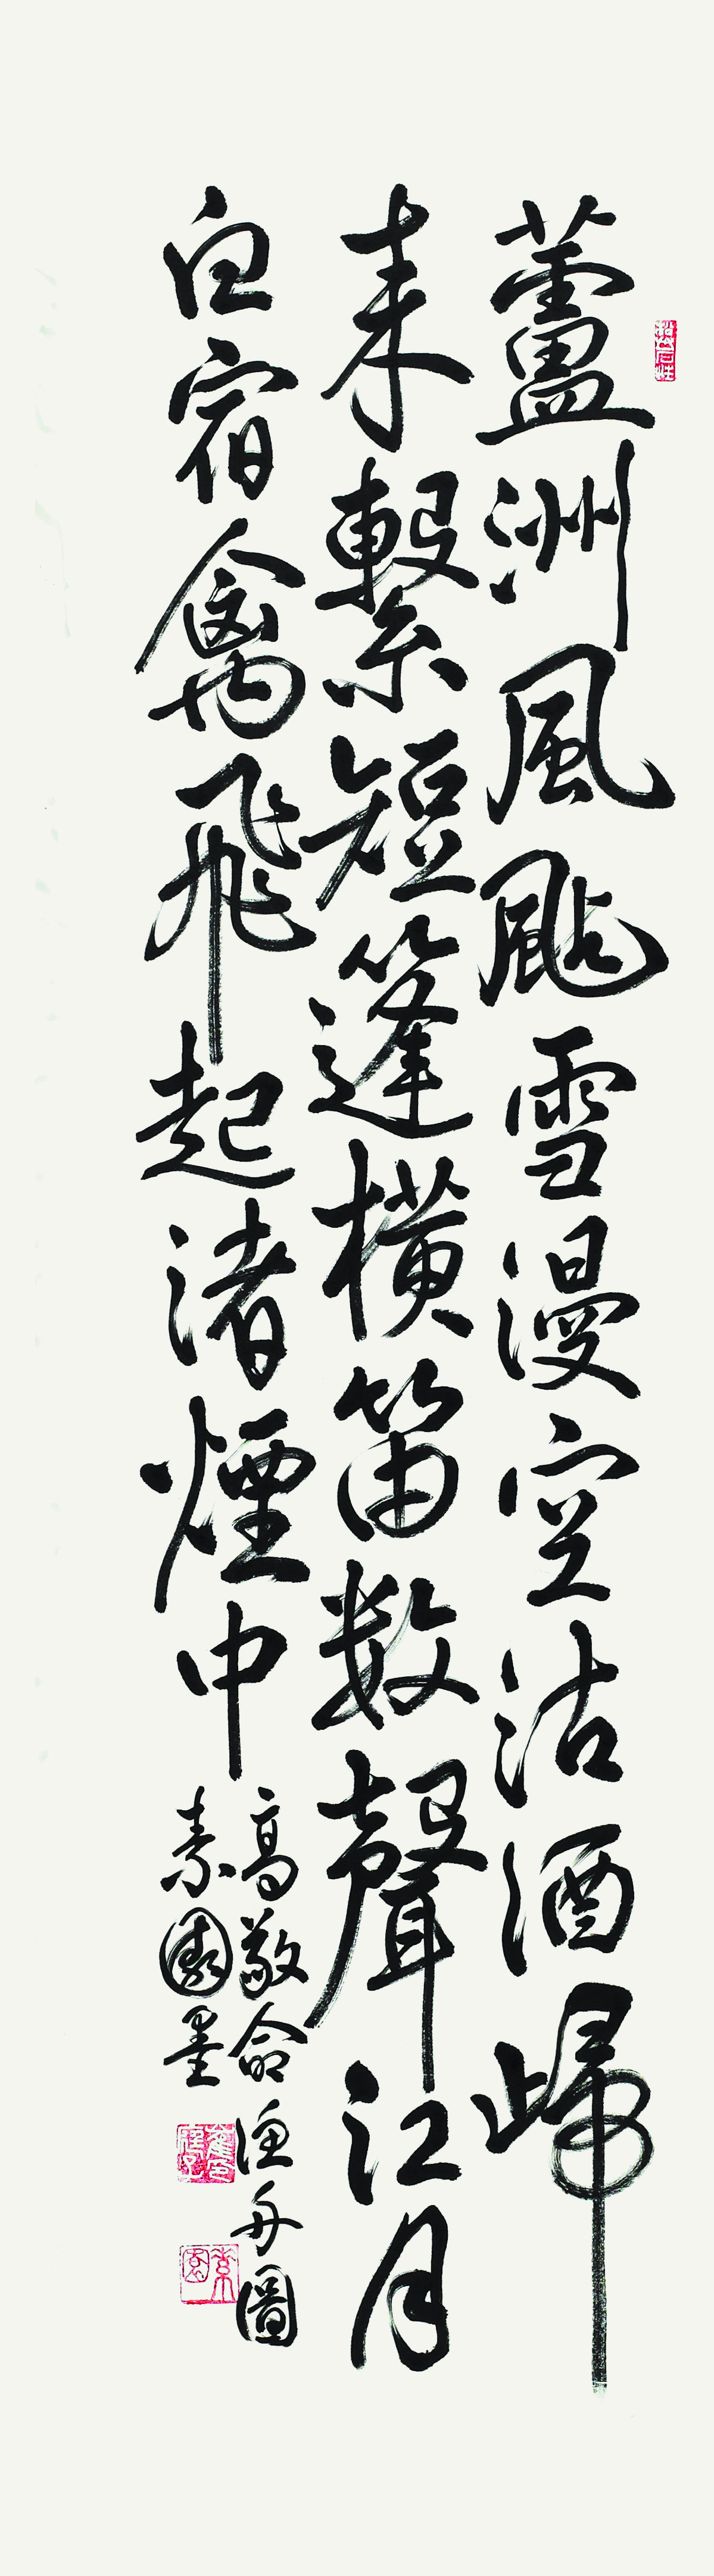 蘆洲風颭雪漫空沽酒歸
来繫短篷横笛数聲江月
白宿禽飛起渚煙中
高敬命漁舟圖
素園墨